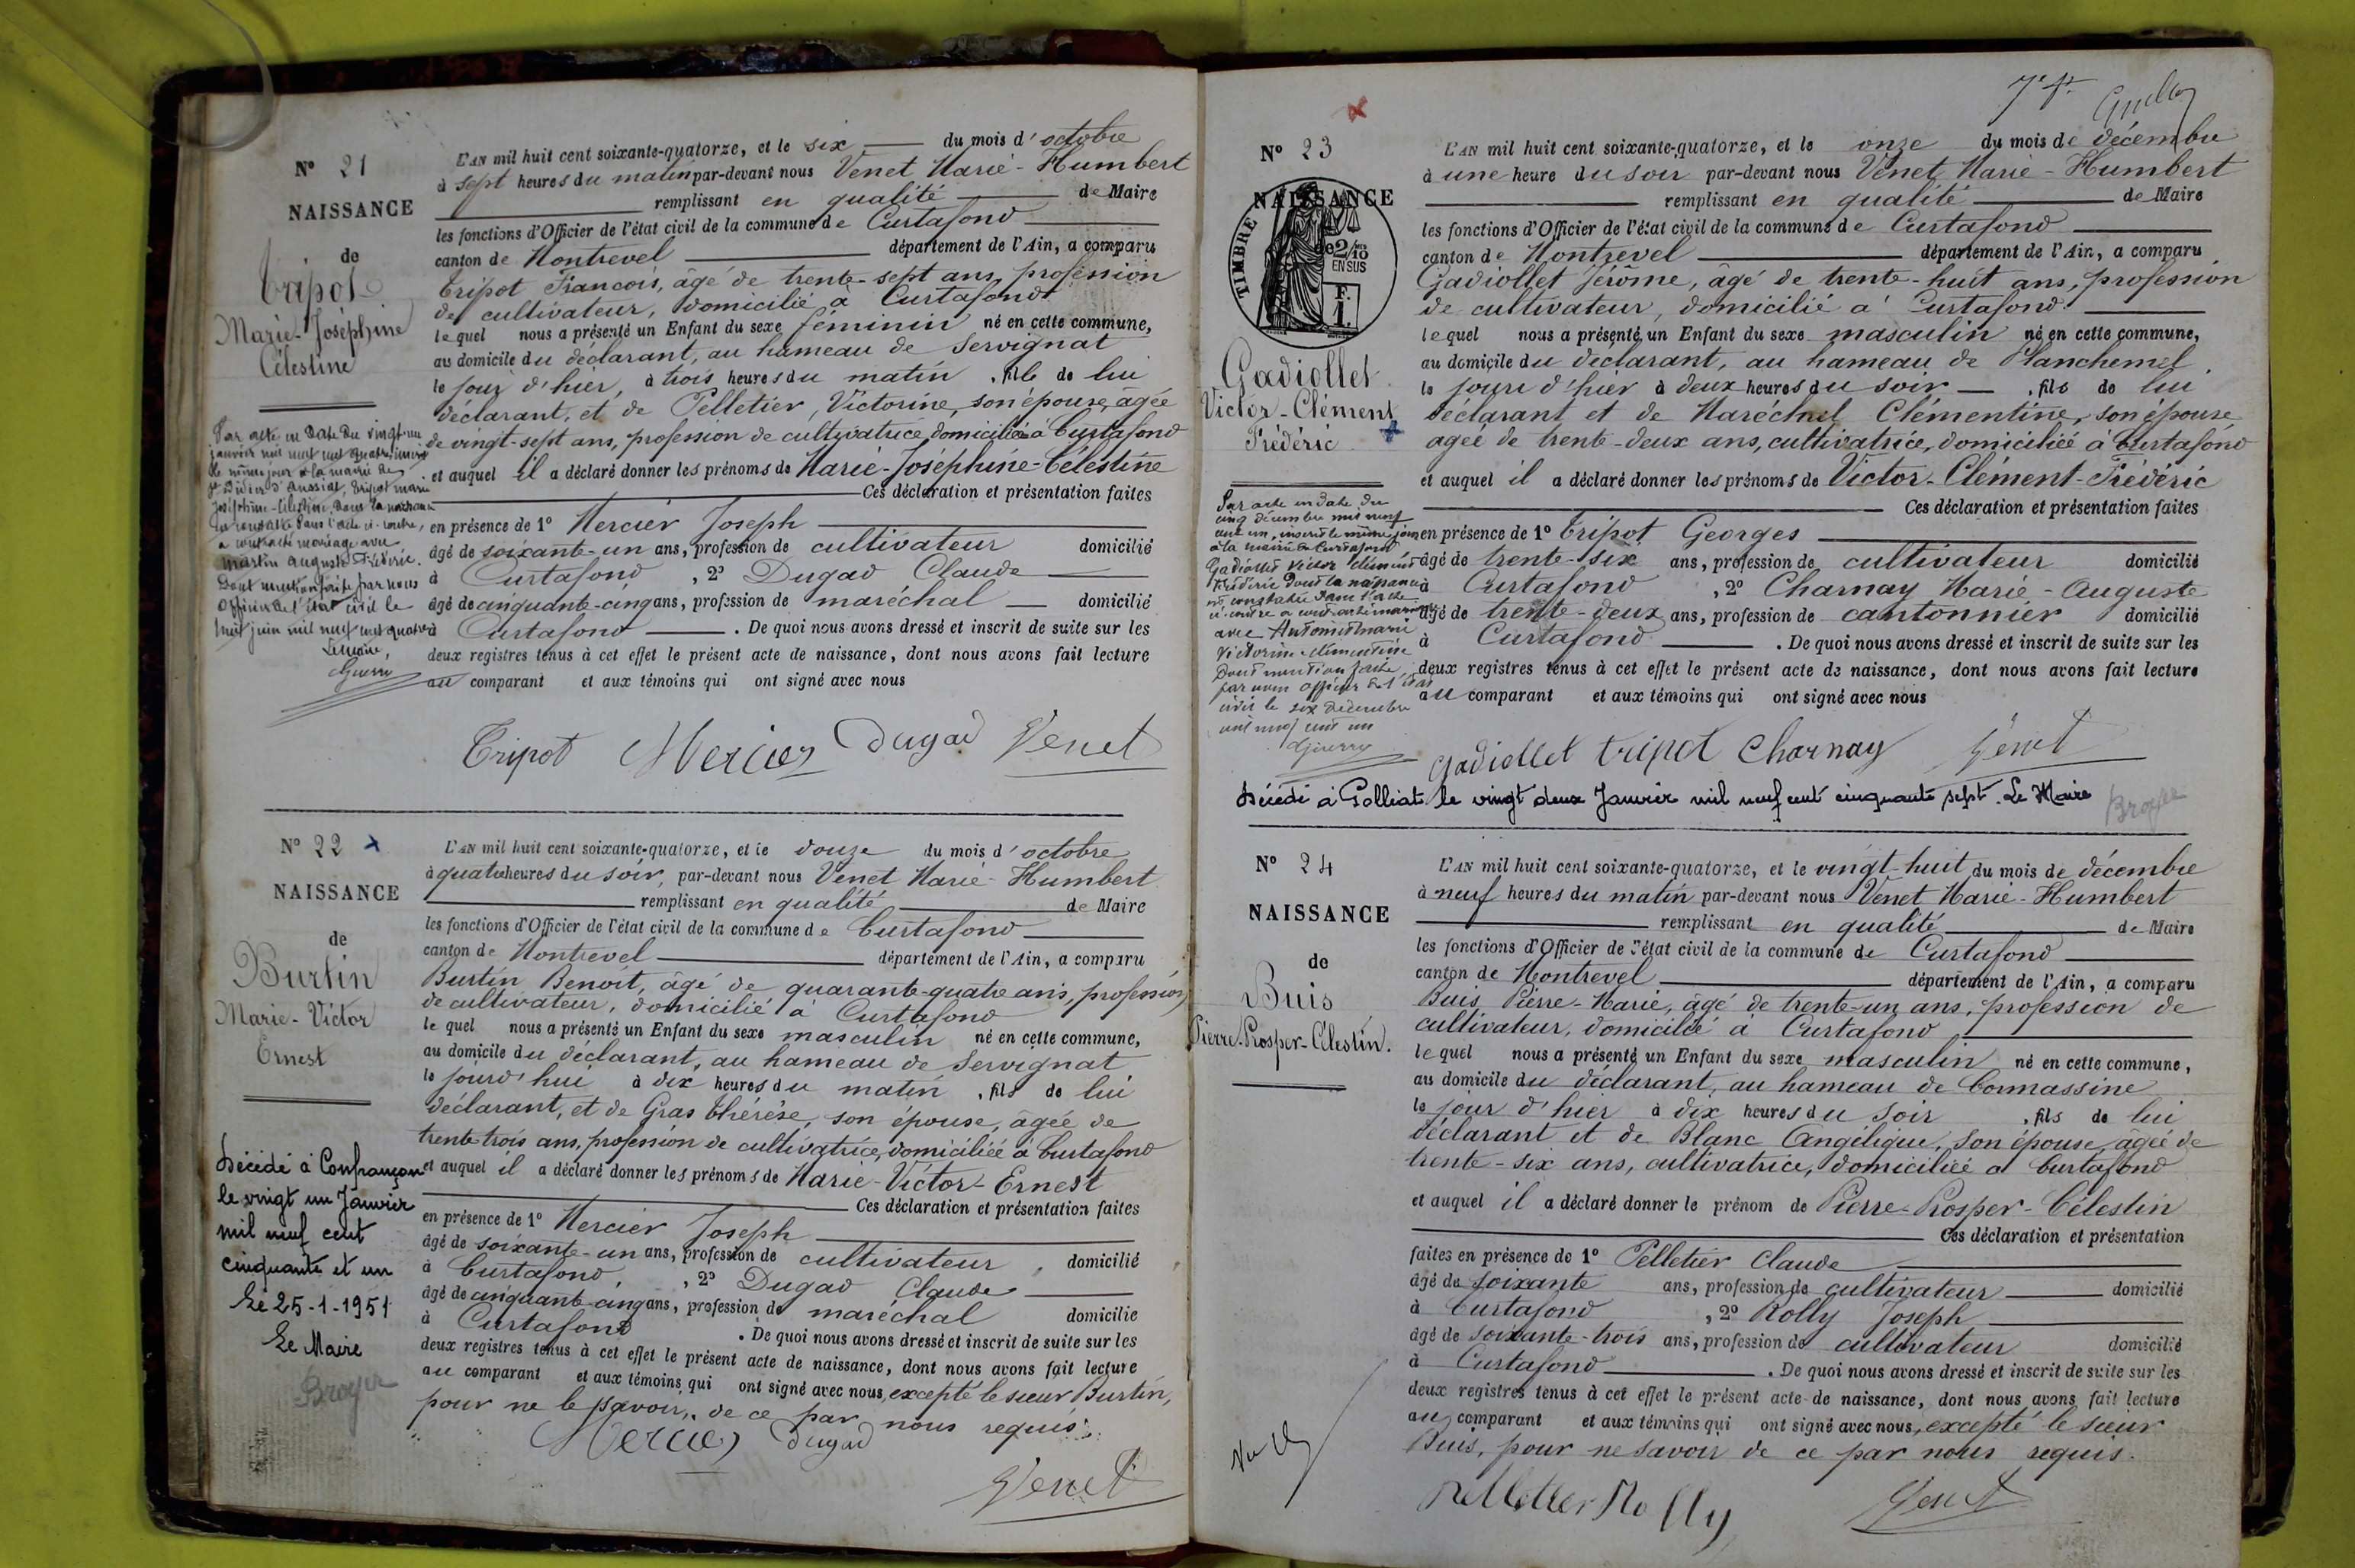 N° 21
NAISSANCE
de
Tripot
Marie-Joséphine
Célestine
L'AN mil huit cent soixante-quatorze, et le six du mois d'octobre
à sept heures du matin par-devant nous Venet Marie-Humbert
remplissant en qualité de Maire
les fonctions d'Officier de l'état civil de la commune de Curtafond
canton de Montrevel département de l'Ain, a comparu
Tripot Francois, âgé de trente-sept ans, profession
de cultivateur, domicilié à Curtafond
lequel nous a présenté un Enfant du sexe féminin né en cette commune,
au domicile du déclarant, au hameau de Servignat
le jour d'hier, à trois heures du matin, fille de lui
déclarant, et de Pelletier, Victorine, son épouse, âgée
de vingt-sept ans, profession de cultivatrice, domiciliée à Curtafond
et auquel il a déclaré donner les prénoms de Marie-Joséphine-Célestine
Ces déclaration et présentation faites
en présence de 1° Mercier Joseph
âgé de soixante-un ans, profession de cultivateur domicilié
à Curtafond, 2° Dugad Claude
âgé de cinquante-cinq ans, profession de maréchal domicilié
à Curtafond. De quoi nous avons dressé et inscrit de suite sur les
deux registres tenus à cet effet le présent acte de naissance, dont nous avons fait lecture
au comparant et aux témoins qui ont signé avec nous
Par acte en date du vingt-un
janvier mil neuf cent quatre, inscrit
le même jour à la mairie de
St Didier d'Aussiat, Tripot Marie
Joséphine-Célestine, dont la naissance
est constatée dans l'acte ci-contre,
a contracté mariage avec
Martin Auguste Frédéric.
Dont mention faite par nous
Officier de l'état civil le
huit juin mil neuf cent quatre
Le Maire,
Guerry
Tripot Mercier Dugad Venet
N° 22
NAISSANCE
de
Burtin
Marie-Victor
Ernest
L'AN mil huit cent soixante-quatorze, et le douze du mois d'octobre
à quatre heures du soir, par-devant nous Venet Marie-Humbert
remplissant en qualité de Maire
les fonctions d'Officier de l'état civil de la commune de Curtafond
canton de Montrevel département de l'Ain, a comparu
Burtin Benoit, âgé de quarante-quatre ans, profession
de cultivateur, domicilié à Curtafond
lequel nous a présenté un Enfant du sexe masculin né en cette commune,
au domicile du déclarant, au hameau de Servignat
le jourd'hui à dix heures du matin, fils de lui
déclarant, et de Gras Thérèse, son épouse, âgée de
trente trois ans, profession de cultivatrice, domiciliée à Curtafond
et auquel il a déclaré donner les prénoms de Marie-Victor-Ernest
Ces déclaration et présentation faites
en présence de 1° Mercier Joseph
âgé de soixante-un ans, profession de cultivateur, domicilié
à Curtafond, 2° Dugad Claude
âgé de cinquante-cinq ans, profession de maréchal domicilié
à Curtafond. De quoi nous avons dressé et inscrit de suite sur les
deux registres tenus à cet effet le présent acte de naissance, dont nous avons fait lecture
au comparant et aux témoins qui ont signé avec nous, excepté le sieur Burtin,
pour ne le savoir, de ce par nous requis.
Décédé à Confrançon
le vingt un Janvier
mil neuf cent
cinquante et un
Le 25-1-1951
Le Maire
Broyer
Mercier Dugad
Venet
N° 23
NAISSANCE
de
TIMBRE
2/10
EN SUS
F.
1.
Gadiollet
Victor-Clément
Frédéric
L'AN mil huit cent soixante-quatorze, et le onze du mois de décembre
à une heure du soir par-devant nous Venet Marie-Humbert
remplissant en qualité de Maire
les fonctions d'Officier de l'état civil de la commune de Curtafond
canton de Montrevel département de l'Ain, a comparu
Gadiollet Jérôme, âgé de trente-huit ans, profession
de cultivateur, domicilié à Curtafond
lequel nous a présenté un Enfant du sexe masculin né en cette commune,
au domicile du déclarant, au hameau de Planchemel
le jour d'hier à deux heures du soir, fils de lui
déclarant et de Maréchal Clémentine, son épouse
agée de trente-deux ans, cultivatrice, domiciliée à Curtafond
et auquel il a déclaré donner les prénoms de Victor-Clément-Frédéric
Ces déclaration et présentation faites
en présence de 1° Tripot Georges
âgé de trente-six ans, profession de cultivateur domicilié
à Curtafond, 2° Charnay Marie-Auguste
âgé de trente-deux ans, profession de cantonnier domicilié
à Curtafond. De quoi nous avons dressé et inscrit de suite sur les
deux registres tenus à cet effet le présent acte de naissance, dont nous avons fait lecture
au comparant et aux témoins qui ont signé avec nous
Par acte en date du
cinq décembre mil neuf
cent un, inscrit le même jour
à la mairie de Curtafond
Gadiollet Victor Clément
Frédéric dont la naissance
est constatée dans l'acte
ci-contre a contracté mariage
avec Marie
Victorine Clémentine
Dont mention faite
par nous Officier de l'état
civil le six décembre
mil neuf cent un
Guerry
Gadiollet Tripot Charnay Venet
Décédé à Polliat le vingt deux Janvier mil neuf cent cinquante sept. Le Maire Broyer
N° 24
NAISSANCE
de
Buis
Pierre-Prosper-Célestin.
L'AN mil huit cent soixante-quatorze, et le vingt-huit du mois de décembre
à neuf heures du matin par-devant nous Venet Marie-Humbert
remplissant en qualité de Maire
les fonctions d'Officier de l'état civil de la commune de Curtafond
canton de Montrevel département de l'Ain, a comparu
Buis Pierre-Marie, âgé de trente-un ans, profession de
cultivateur, domicilié à Curtafond
lequel nous a présenté un Enfant du sexe masculin né en cette commune,
au domicile du déclarant, au hameau de Cormassine
le jour d'hier à dix heures du soir, fils de lui
déclarant et de Blanc Angélique, son épouse, agée de
trente-six ans, cultivatrice, domiciliée à Curtafond
et auquel il a déclaré donner le prénom de Pierre-Prosper-Célestin
Ces déclaration et présentation
faites en présence de 1° Pelletier Claude
âgé de soixante ans, profession de cultivateur domicilié
à Curtafond, 2° Rolly Joseph
âgé de soixante-trois ans, profession de cultivateur domicilié
à Curtafond. De quoi nous avons dressé et inscrit de suite sur les
deux registres tenus à cet effet le présent acte de naissance, dont nous avons fait lecture
au comparant et aux témoins qui ont signé avec nous, excepté le sieur
Buis, pour ne savoir de ce par nous requis.
Pelletier Rolly Venet